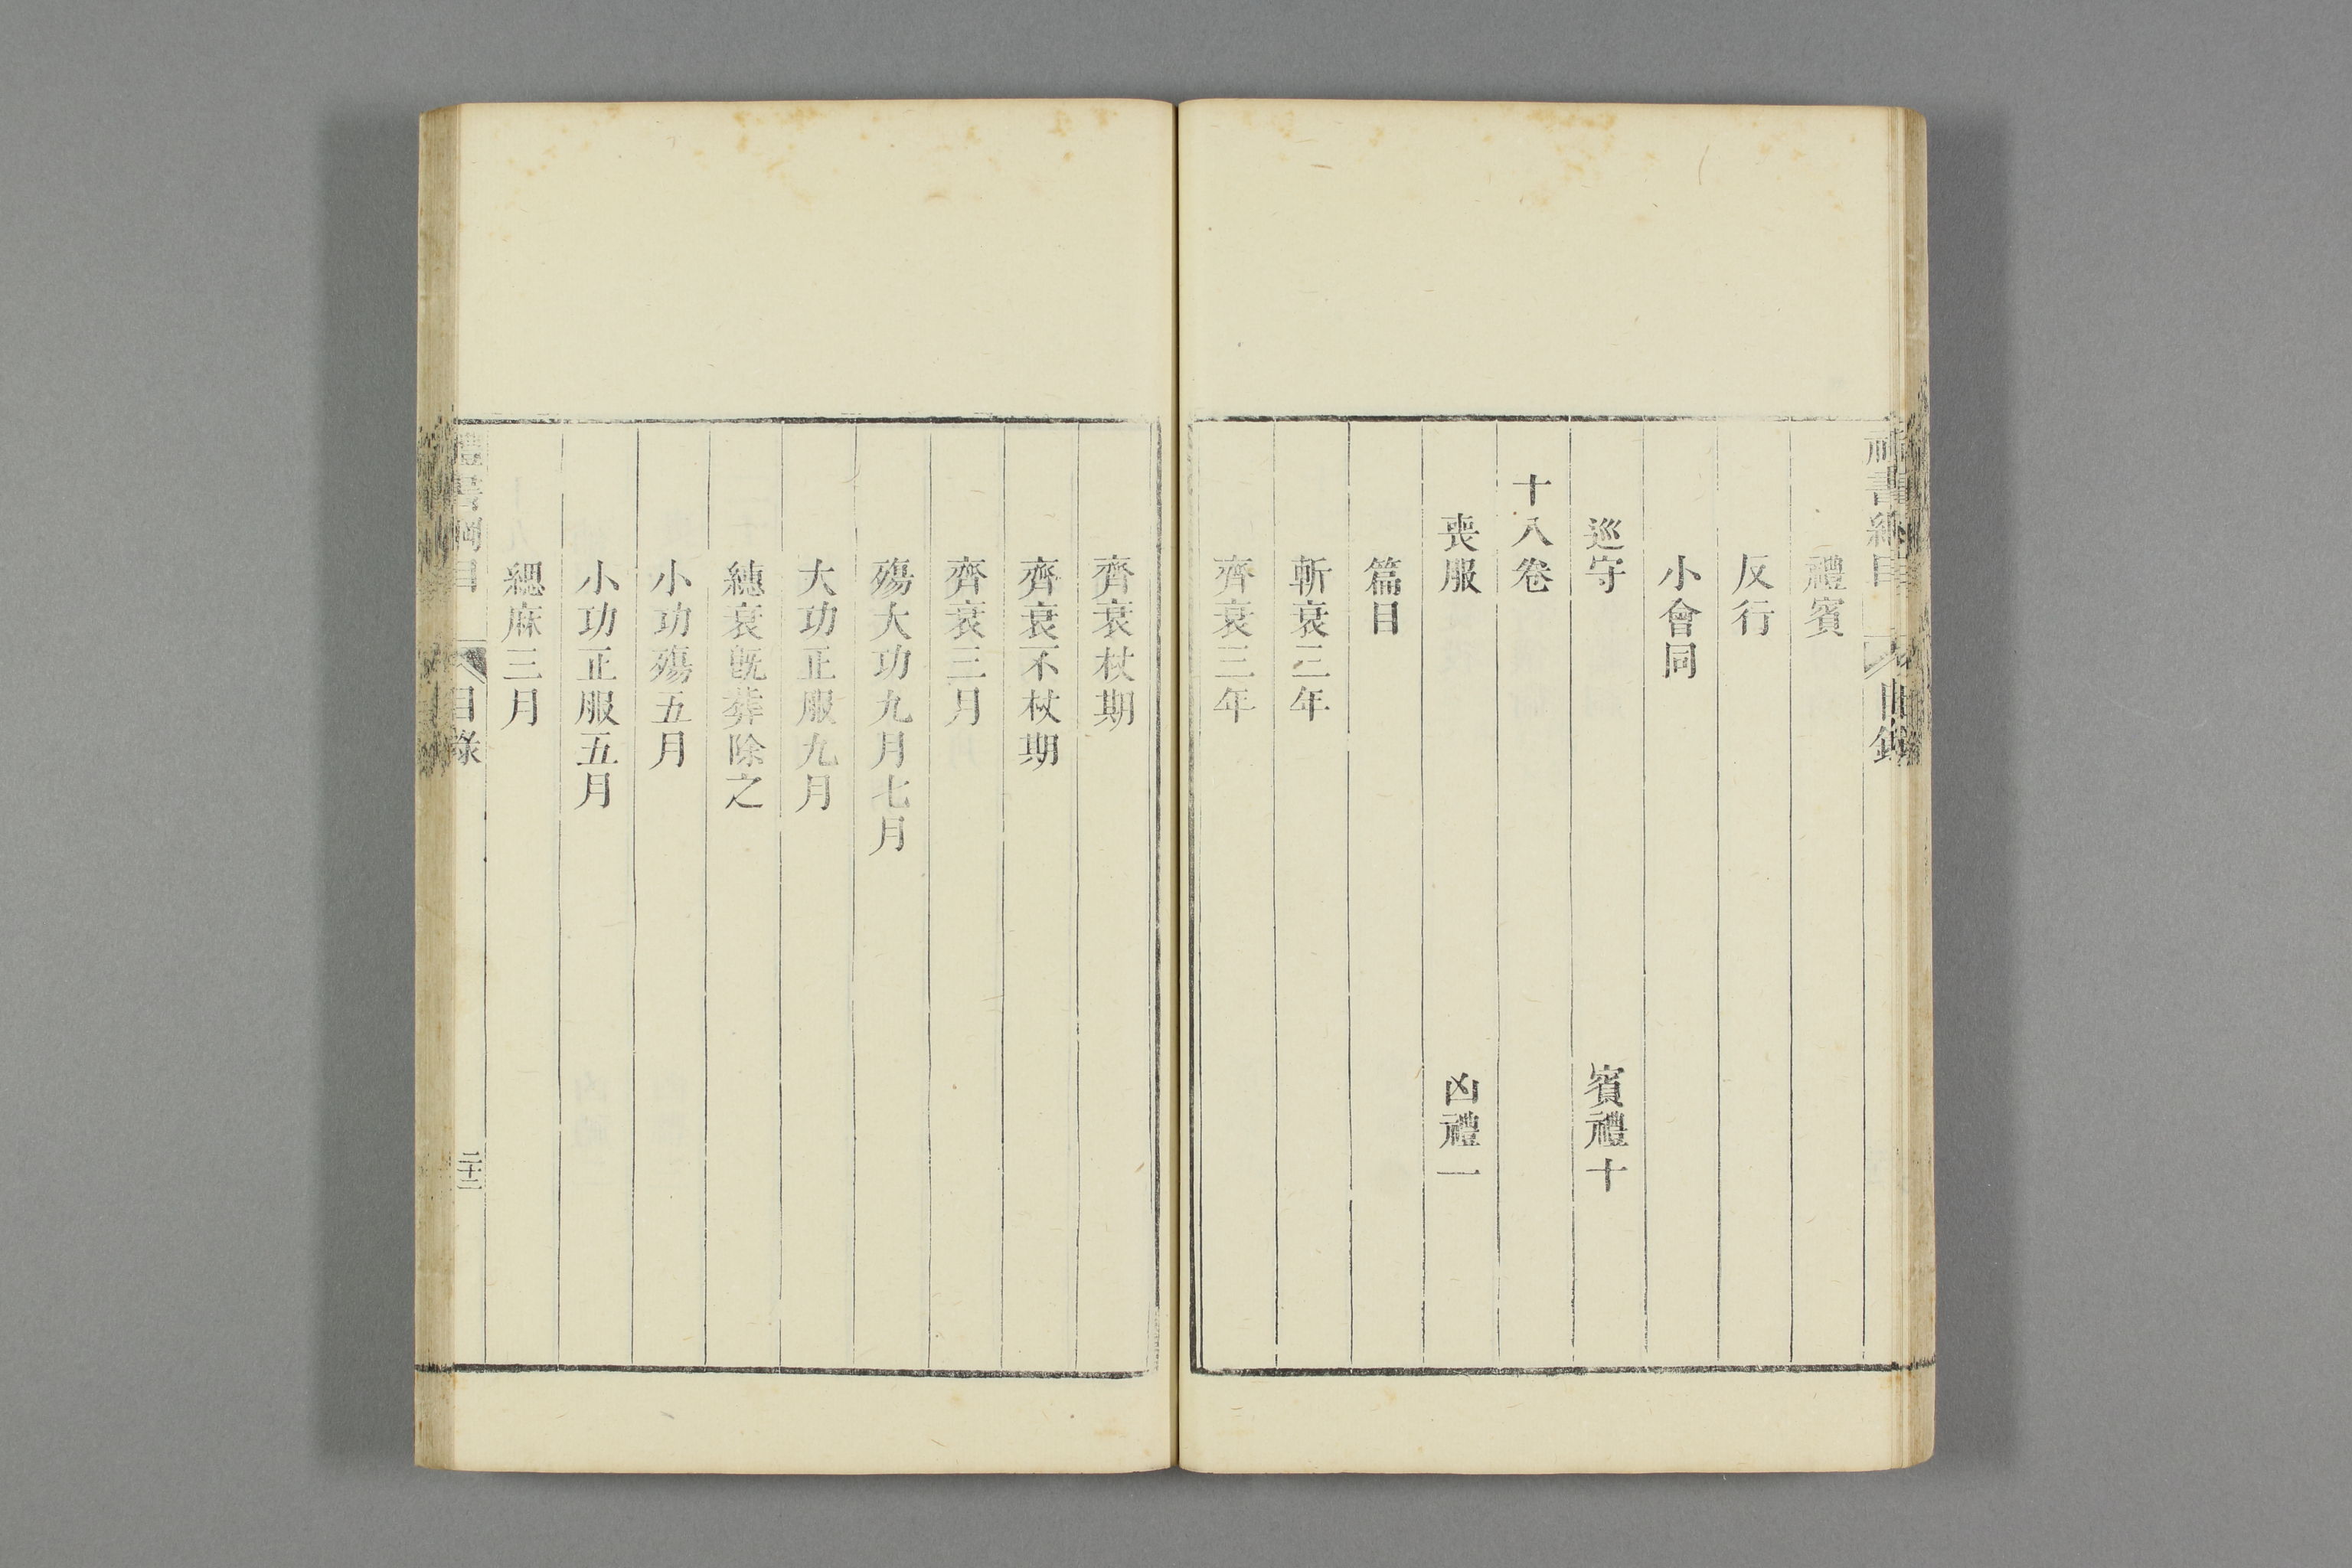 禮賓
反行
小會同
巡守 賓禮十
十八卷
喪服 凶禮一
篇目
斬衰三年
齊衰三年
齊衰杖期
齊衰不杖期
齊衰三月
殤大功九月七月
大功正服九月
繐衰旣葬除之
小功殤五月
小功正服五月
緦麻三月
禮書綱目 目錄 二十二